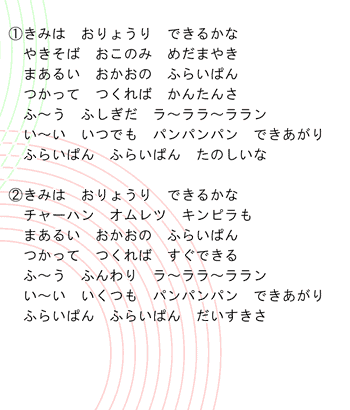 ①きみは　おりょうり　できるかな
やきそば　おこのみ　めだまやき
まあるい　おかおの　ふらいぱん
つかって　つくれば　かんたんさ
ふ～う　ふしぎだ　ラ～ララ～ララン
い～い　いつでも　パンパンパン　できあがり
ふらいぱん　ふらいぱん　たのしいな
②きみは　おりょうり　できるかな
チャーハン　オムレツ　キンピラも
まあるい　おかおの　ふらいぱん
つかって　つくれば　すぐできる
ふ～う　ふんわり　ラ～ララ～ララン
い～い　いくつも　パンパンパン　できあがり
ふらいぱん　ふらいぱん　だいすきさ